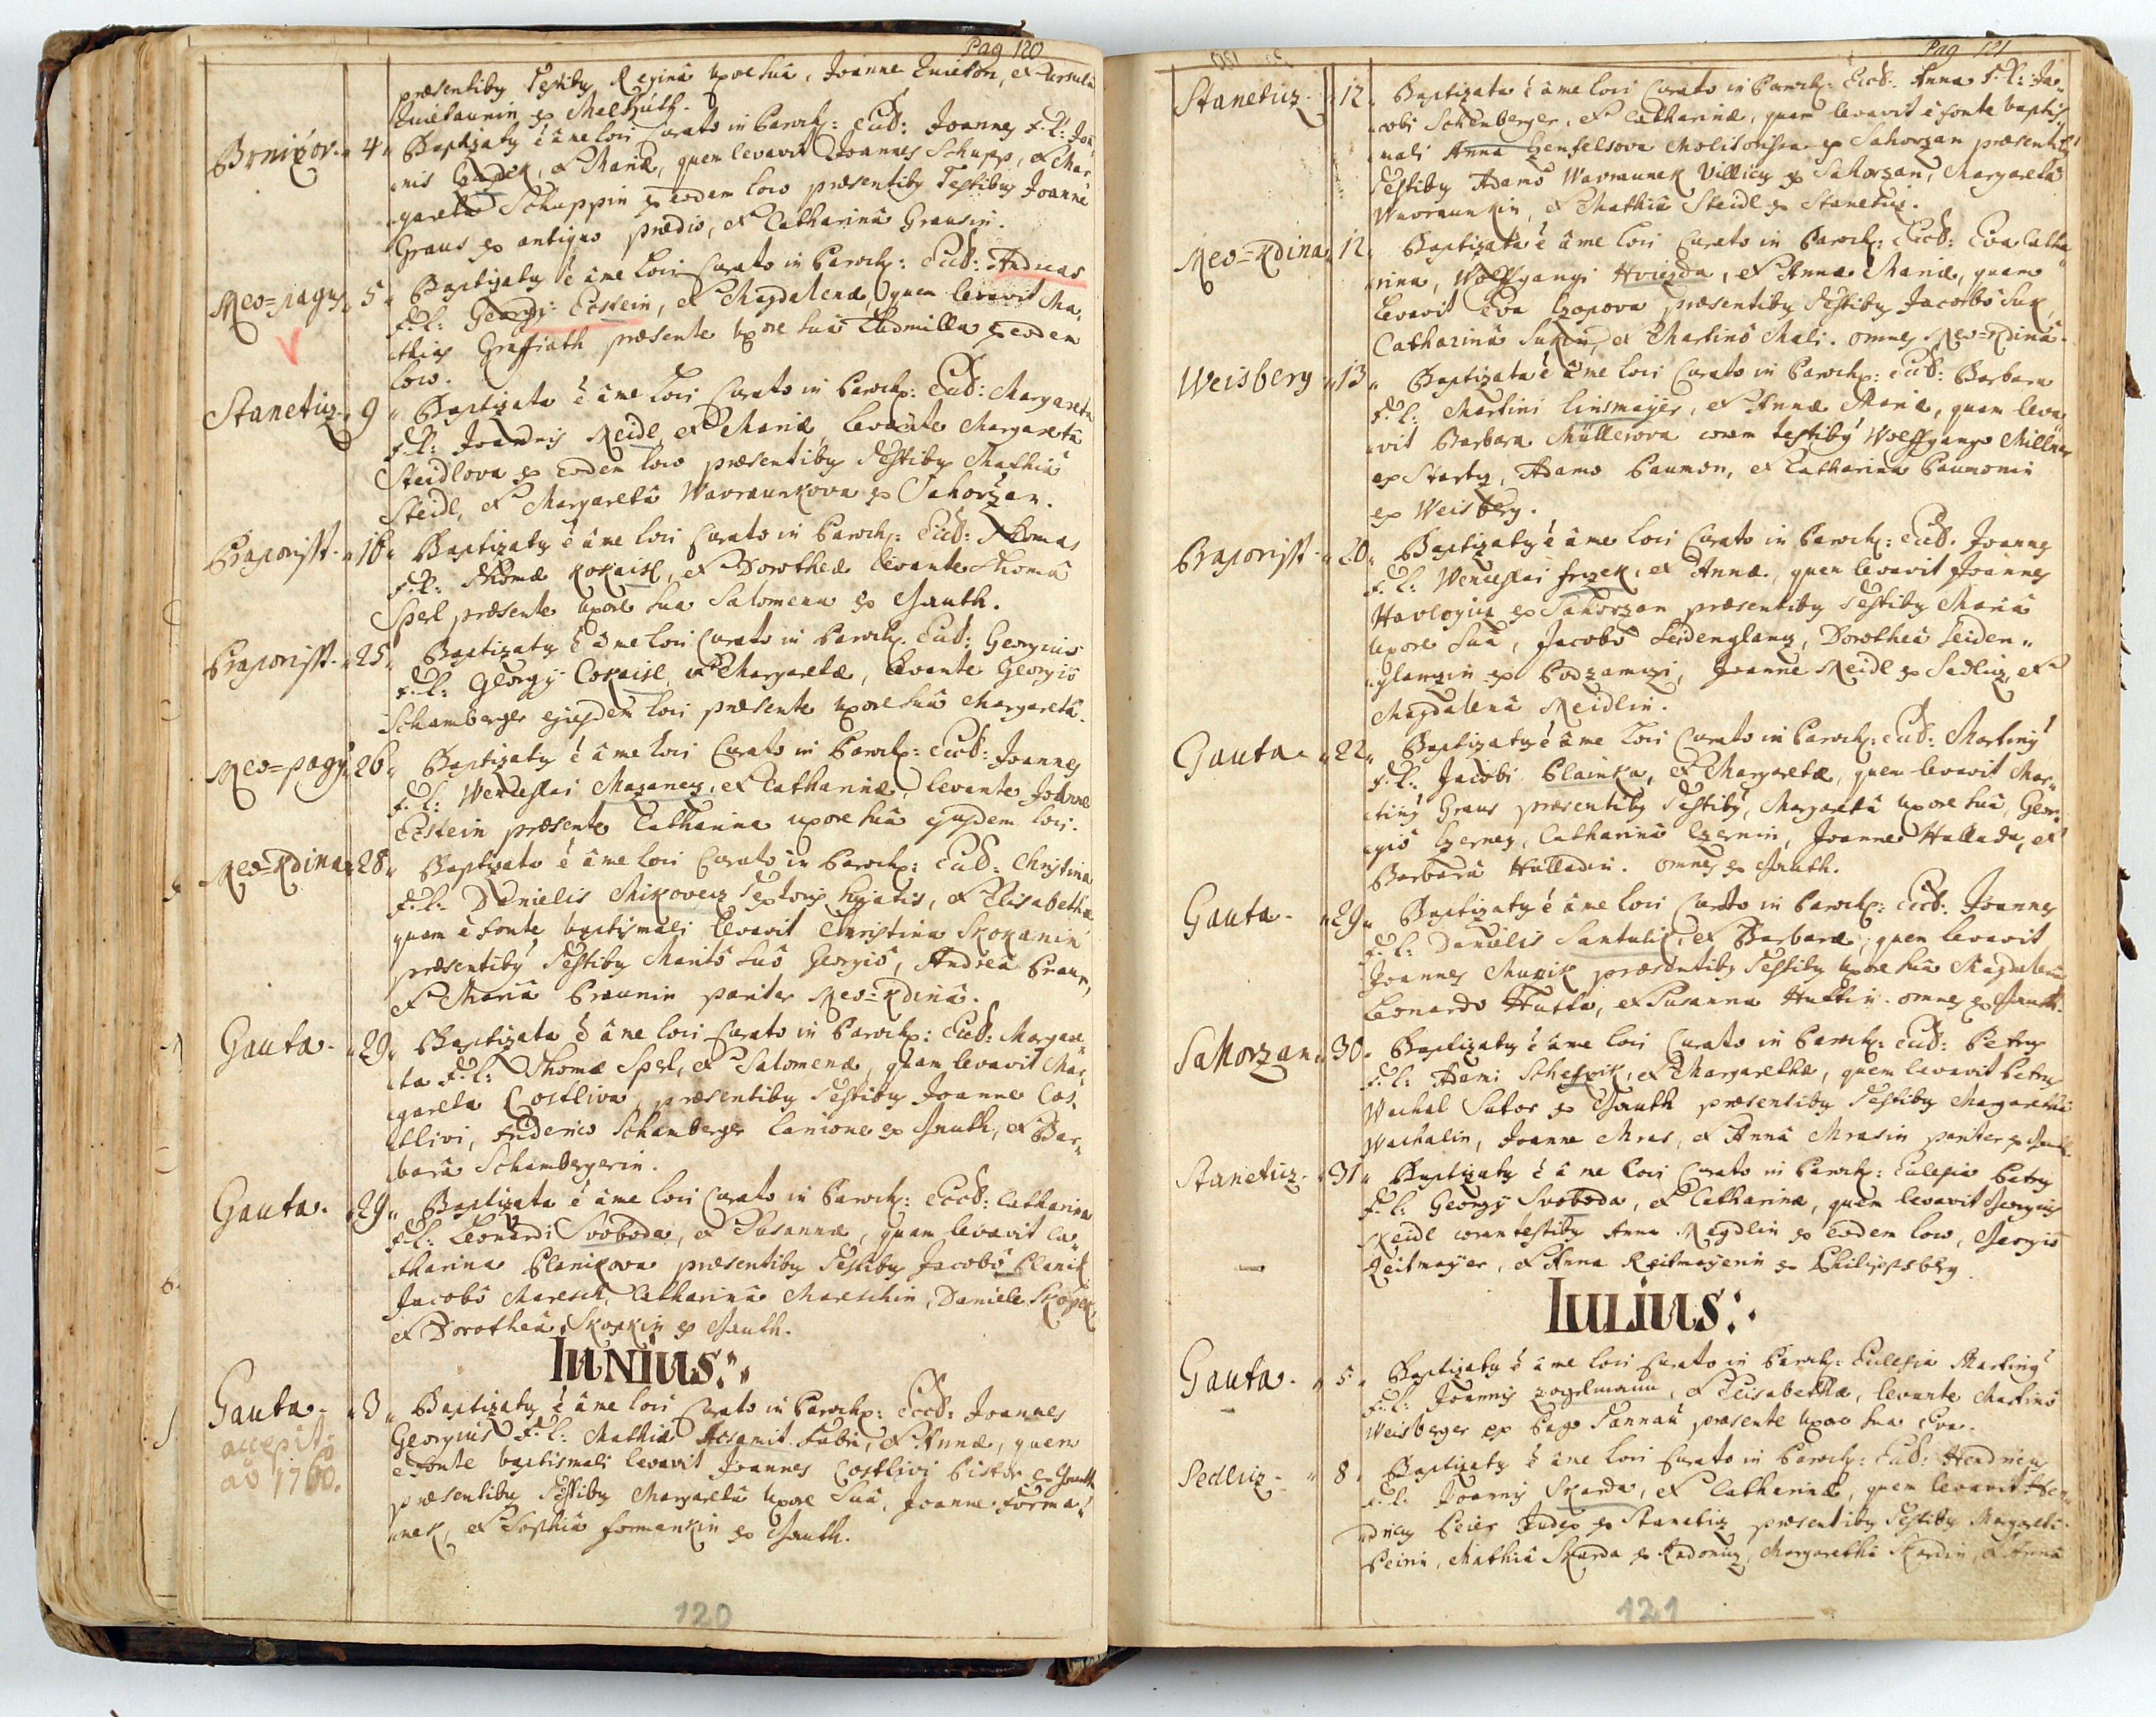 Pag 120
præsentiby Testiby Reginâ Uxore suâ, Joanne Kniekon, et Ursula
ex Malthuth.
Bonixov. 4 Baptizaty ê âme loci Curato in Paroch: Eccl: Joannes F: L: Joa¨
nnis et Mariæ, quem levavit Joannes Schupp, et Mar¨
garetâ Schuppin ex eodem loco præsentiby Testibus Joanne
Graus ex antiquo prædio, et Catharinâ Grausin.
Neo=pagus 5 Baptizaty ê âme loci Curato in Paroch: Eccl: Andreas
F: L: Georgy Eckstein, et Magdalenæ quem levavit Ma¨
thias præsente Uxore suâ Ludmilla ex eodem
loco.
Stanetiz. 9 Baptizata ê âme loci Curato in Paroch: Eccl: Margareta
F: L: Joannis Neidl et Mariæ levante Margaretâ
Steidlova ex Eodem loco præsentiby Testiby Mathiâ
Steidl, et Margaretâ Wavraunkova ex Sahorzan.
Praporist. 16 Baptizaty ê âme loci Curato in Paroch: Eccl: Thomas
F: L: Thomæ Kokaisl, et Dorotheæ levante Thomâ
Sperl præsente Uxore sua Salomena ex Gauth.
Praporist. 25 Baptizaty ê âme loci Curato in Paroch: Eccl: Georgius
F: L: Georgy Cokaisl, et Margaretæ, levante Georgiô
Schamberger ejusdem loci præsente Uxore suâ Margaretâ.
Neo=pagy 26 Baptizaty ê âme loci Curato in Paroch: Eccl: Joannes
F: L: Wenceslai Mazanez, et Catharinæ, levante Joanne
Eckstein præsente Catharina uxore suâ ejusdem loci.
Neo=Kdina 28 Baptizata ê âme loci Curato in Paroch: Eccl: Christina
F: L: Danielis Mikovecz Textoris hujatis, et Elisabethæ
quam ê fonte baptismali levavit Christina Skokanin
præsentiby Testiby Maritô suô Georgiô, Andreâ Praun,
et Mariâ Praunin pariter Neo=Kdinâ.
Gauta. 29 Baptizata ê âme loci Curato in Paroch: Eccl: Margare¨
ta F: L: Thomæ Sperl, et Salomenæ, quam levavit Mar¨
gareta Costliva, præsentiby Testiby Joanne Cos¨
tlivi, Friderico Schamberger Lanione ex Gauth, et Bar¨
barâ Schambergerin.
Gauta. 29 Baptizata ê âme loci Curato in Paroch: Eccl: Catharina
F: L: Leonardi Svoboda, et Susannæ, quam levavit Ca¨
tharina Planikova præsentiby Testiby Jacobô Planik
Jacobô Maresch, Catharinâ Mareschin, Daniele Skopek,
et Dorotheâ Skopkin ex Gauth.
IUNIUS:
Gauta. 3 Baptizaty ê âme loci Curato in Paroch: Eccl: Joannes
accepit Georgius F: L: Mathiæ Acsamit Fabri, et Annæ, quem
aô 1760. ê fonte baptismali levavit Joannes Costlivi Pistor ex Gauth
præsentiby Testiby Margaretâ Uxore suâ, Joanne Forma¨
nek, et Sophiâ formankin ex Gauth.
120
Pag 121
Stanetiz. 12 Baptizata ê âme loci Curato in Paroch: Eccl: Anna F: L: Ja¨
cobi Schenberger, et Catharinæ, quam levavit ê fonte baptis¨
mali Anna Henselsova Molitorissa ex Sahorzan præsentiby
Testiby Adamô Wavraunek Villicus ex Sahorzan, Margaretâ
Wavraunkin, et Mathiâ Steidl ex Stanetiz.
Neo=Kdina 12 Baptizata ê âme loci Curato in Paroch: Eccl: Eva Catha¨
rina, Wolffgangi Hviezda, et Annæ Mariæ, quam
levavit Eva præsentiby Testiby Jacobô Suk
Catharinâ Sukin, et Martinô Mali. omnes Neo=Kdinâ.
Weisberg 13 Baptizata ê âme loci Curato in Paroch: Eccl: Barbara
F: L: Martini Linsmayer, et Annæ Mariæ, quam leva¨
vit Barbara Müllerova coram testiby Wolffgango Millner
ex Startz, Adamo Paumon, et Catharina Paumonin
ex Weisberg.
Praporist. 20 Baptizaty ê âme loci Curato in Paroch: Eccl. Joannes
F: L: Wenceslai frczek, et Annæ, quem levavit Joannes
Havlogiz ex Sahorzan præsentiby Testiby Mariâ
Uxore suâ, Jacobô Seidenglanz, Dorotheâ Seiden¨
glanzin ex Podzamczi, Joanne Neidl ex Sedliz, et
Magdalenâ Neidlin.
Gauta. 22 Baptizaty ê âme loci Curato in Paroch: Eccl: Martiny
F: L: Jacobi Plainka, et Margaretæ, quem levavit Mar¨
tiny Graus præsentiby Testiby, Margaretâ Uxore suâ, Geor¨
giô Czerney, Catharinâ Czernin, Joanne Hallada, et
Barbarâ Halladin. omnes ex Gauth.
Gauta. 29 Baptizaty ê âme loci Curato in Paroch: Eccl: Joannes
F: L: Danielis Santulik, et Barbaræ, quem levavit
Joannes Muzik præsentiby Testiby Uxore suâ Magdalena
Leonardo Hutta, et Susanna Huttin. omnes ex Gauth.
Sahorzan 30 Baptizaty ê âme loci Curato in Paroch: Eccl: Petrus
F: L: Adami Scheffzik, et Margarethæ, quem levavit Petrus
Wachal Sutor ex Gauth præsentiby Testiby Margaretha
Wachalin, Joanne Mras, et Annâ Mrasin pariter ex Gauth.
Stanetiz. 31 Baptizaty ê âme loci Curato in Paroch: Eclesia Petrus
F: L: Georgy Svoboda, et Catharinæ, quem levavit Georgius
Neidl coram testiby Anna Neydlin ex Eodem loco, Georgiô
Reitmayer, et Anna Reitmayerin ex Philippsberg
IULIUS:
Gauta. 5 Baptizaty ê âme loci Curato in Paroch: Eclesia Martiny
F: L: Joannis zogelmann, et Elisabethæ, levante Martinô
Weisberger ex Pago Tannau præsente Uxore sua Eva.
Sedliz. 8 Baptizaty ê âme loci Curato in Paroch: Eccl: Hendricus
F: L: Joannis Skarda, et Catharinæ, quem levavit Hen¨
dricus Beier Judex ex Stanetiz præsentiby Testiby Margareta
Beirin, Mathiâ Skarda ex Radoniz, Margarethâ Skardin, et Annâ
121